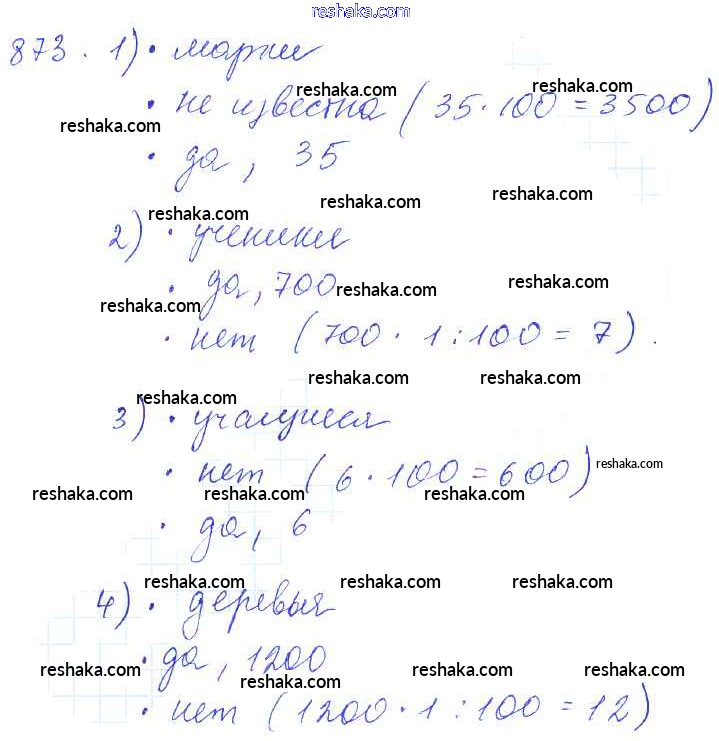 reshaka.com
873. 1) • марки
reshaka.com reshaka.com
• не известна (35·100 = 3500)
reshaka.com reshaka.com
• да, 35
reshaka.com
reshaka.com
2) • ученики
reshaka.com
• да, 700
reshaka.com
reshaka.com
• нет (700 · 1 : 100 = 7).
reshaka.com reshaka.com
3) • учащиеся
reshaka.com
• нет (6 · 100 = 600)
reshaka.com
reshaka.com reshaka.com reshaka.com
• да, 6
reshaka.com reshaka.com reshaka.com
4) • деревья
• да, 1200
reshaka.com reshaka.com reshaka.com
reshaka.com
• нет (1200 · 1 : 100 = 12)